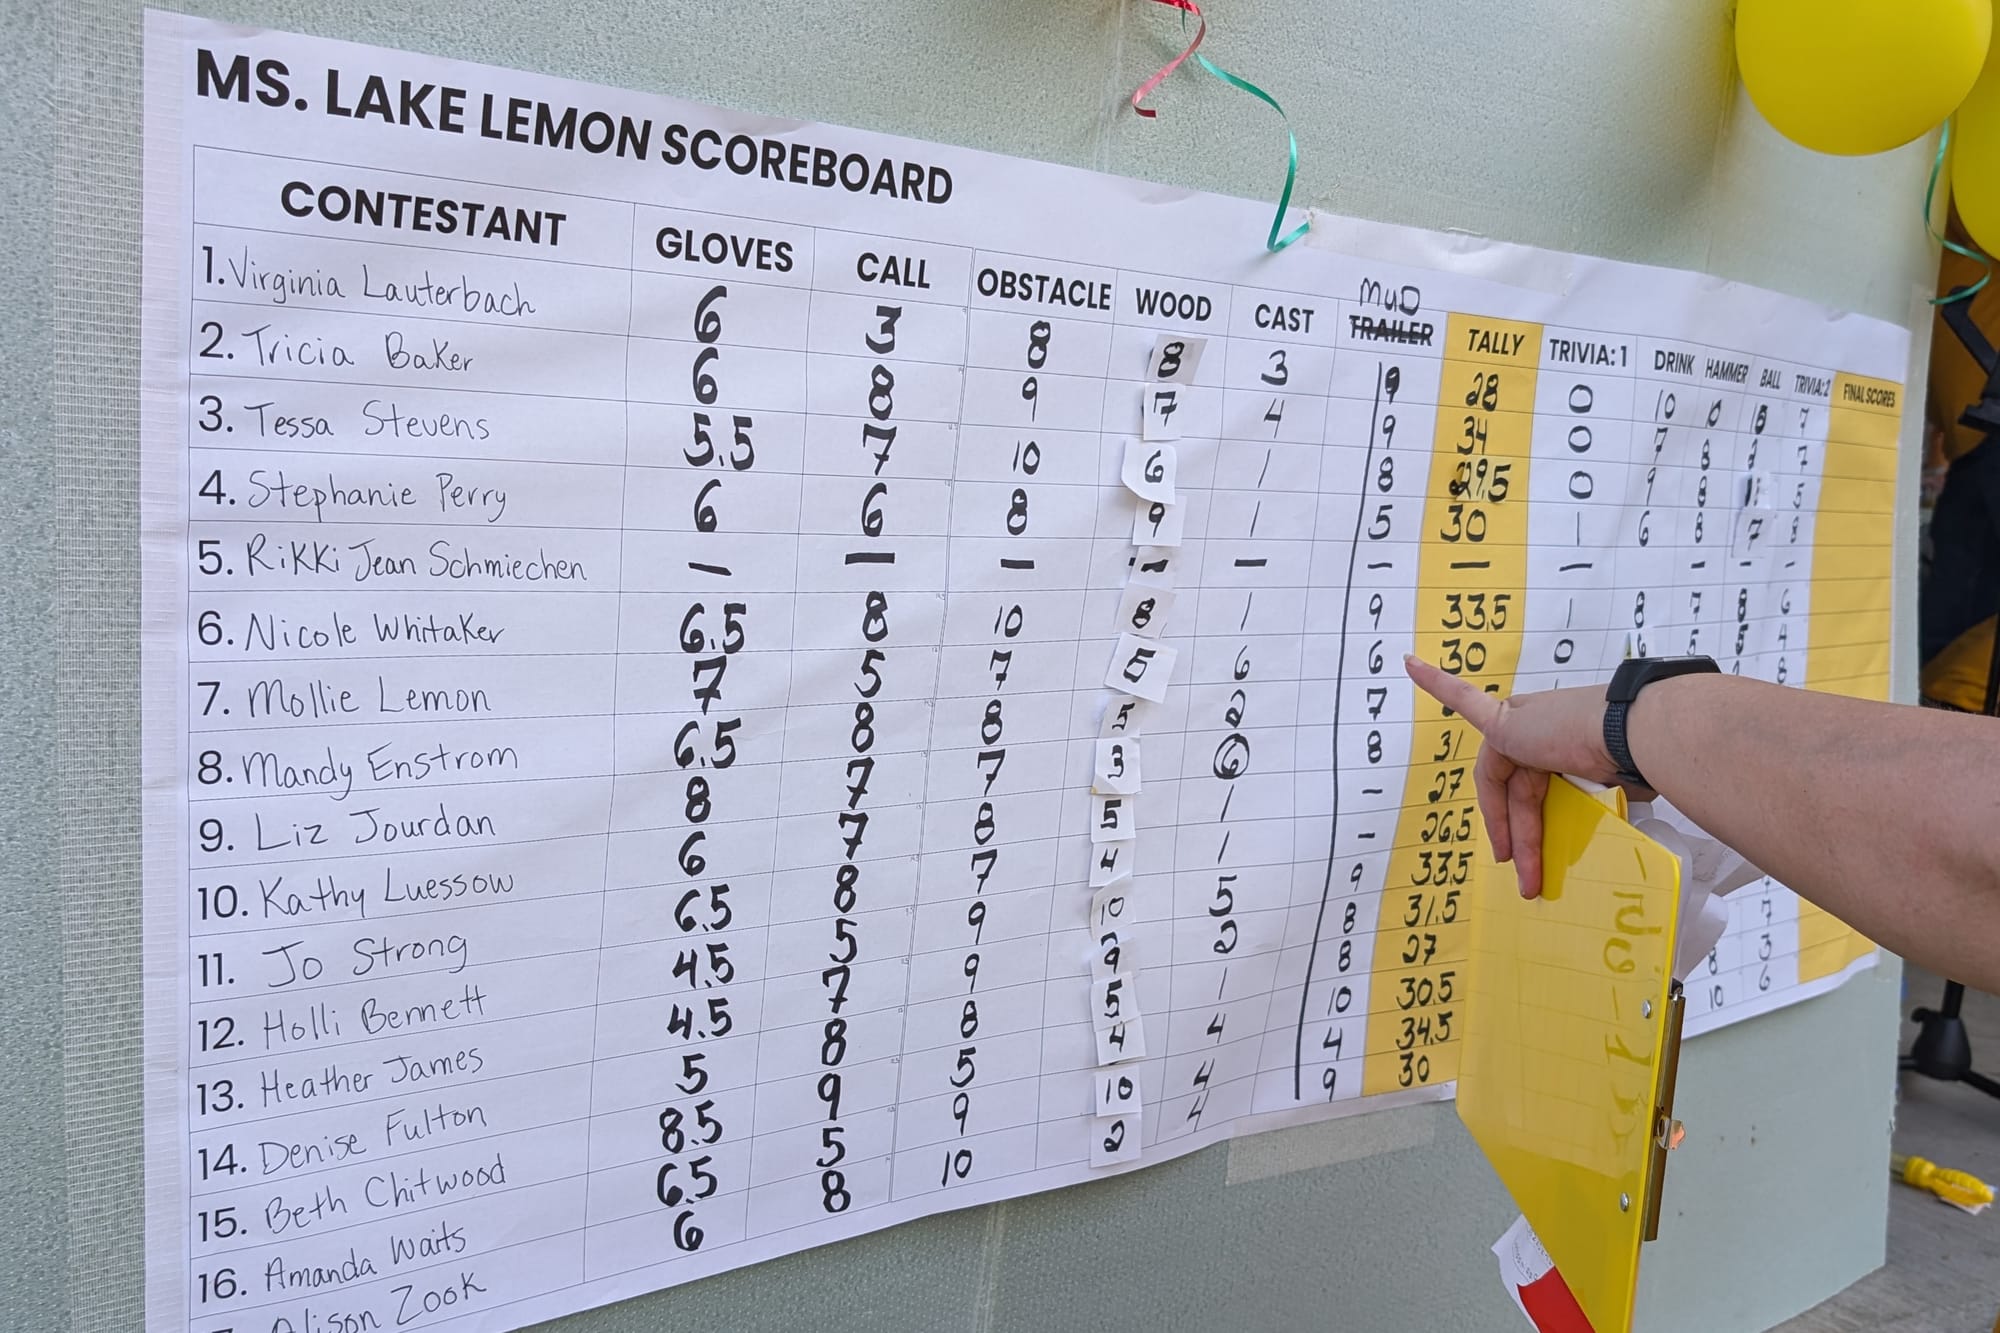 MS. LAKE LEMON SCOREBOARD
MUD
CONTESTANT GLOVES CALL OBSTACLE WOOD CAST TRAILER TALLY TRIVIA: 1 DRINK HAMMER BALL TRIVIA: 2 FINAL SCORES
1. Virginia Lauterbach 6 3 8 8 3 9 28 0 10 7
2. Tricia Baker 6 8 9 7 4 9 34 0 7 8 7
3. Tessa Stevens 5.5 7 10 6 1 8 29.5 0 9 8 5
4. Stephanie Perry 6 6 8 9 1 5 30 – 6 8 7 8
5. Rikki Jean Schmiechen — — — - — – — — - - -
6. Nicole Whitaker 6.5 8 10 8 1 9 33.5 – 8 7 8 6
7. Mollie Lemon 7 5 7 5 6 6 30 0 6 5 5 4
8. Mandy Enstrom 6.5 8 8 5 2 7 8
9. Liz Jourdan 8 7 7 3 6 8 31
10. Kathy Luessow 6 7 8 5 1 – 27
11. Jo Strong 6.5 8 7 4 1 – 26.5
12. Holli Bennett 4.5 5 9 10 5 9 33.5
13. Heather James 4.5 7 9 9 2 8 31.5
14. Denise Fulton 5 8 8 5 1 8 27
15. Beth Chitwood 8.5 9 5 4 4 10 30.5
16. Amanda Waits 6.5 5 9 10 4 4 34.5
Alison Zook 6 8 10 2 4 9 30